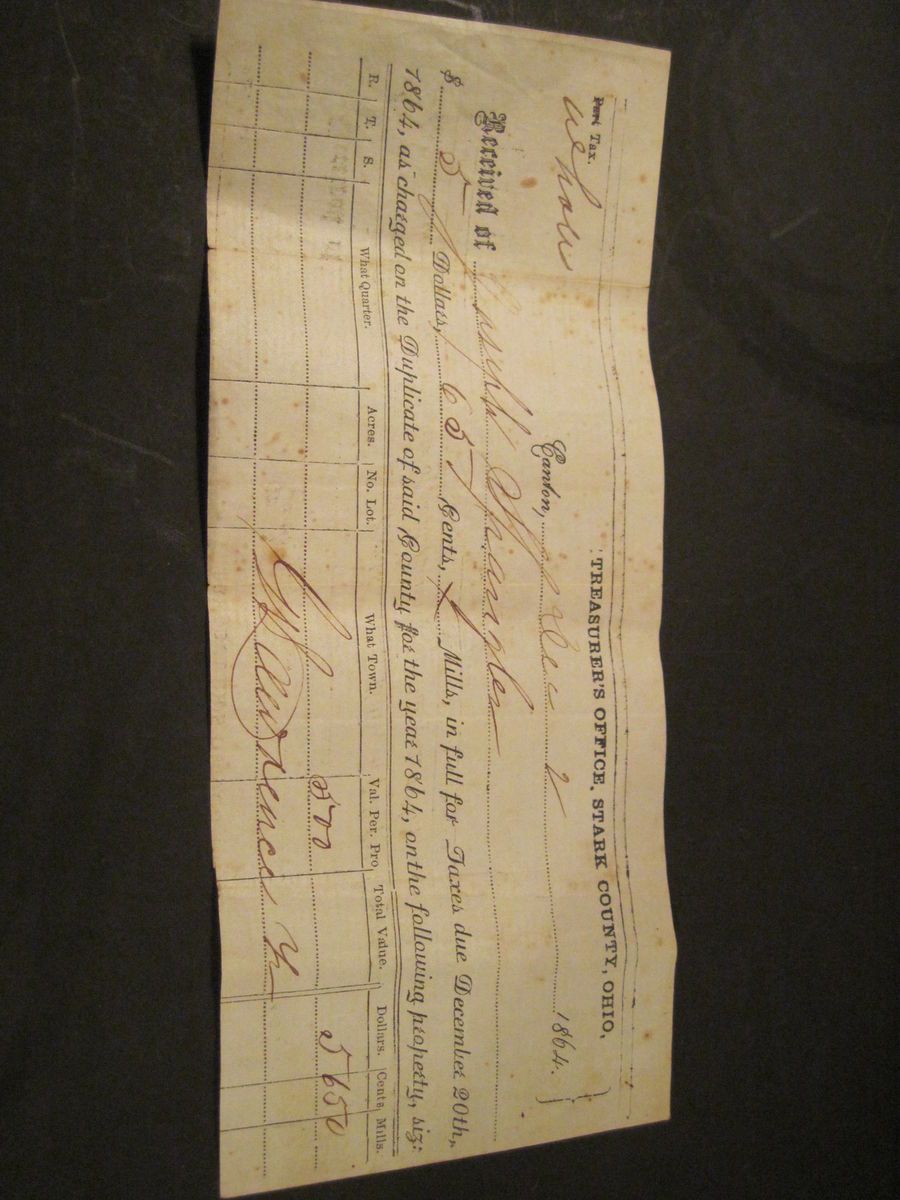 TREASURER'S OFFICE, STARK COUNTY, OHIO,
Part Tax.
Whole
Canton, Dec 2 1864.
Received of Joseph
$ 5 Dollars, 65 Cents, Mills, in full for Taxes due December 20th,
1864, as charged on the Duplicate of said County for the year 1864, on the following property, siz:
R. T. S. What Quarter. Acres. No. Lot. What Town. Val. Per. Pro Total Value. Dollars. Cents Mills.
500 5 65 0
Lawrence